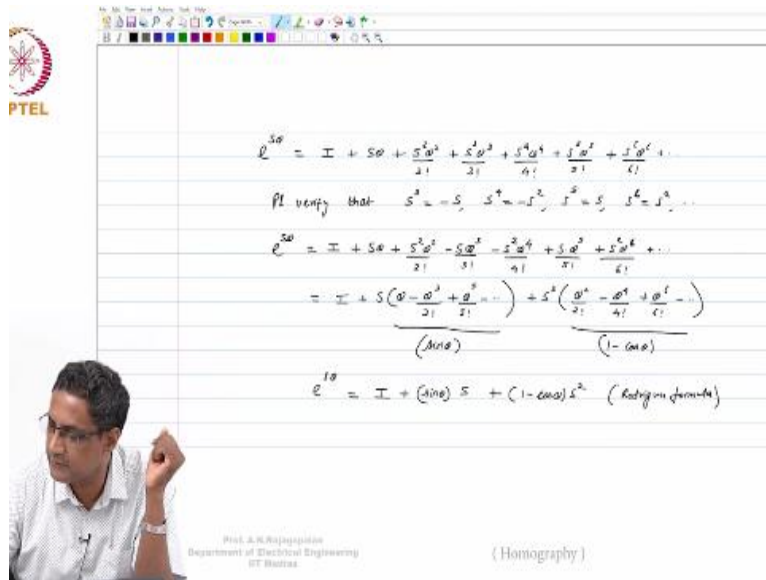 PTEL
e^{Sθ} = I + Sθ + S²θ²/2! + S³θ³/3! + S⁴θ⁴/4! + S⁵θ⁵/5! + S⁶θ⁶/6! + ..
Pl verify that S³ = -S, S⁴ = -S², S⁵ = S, S⁶ = S², ..
e^{Sθ} = I + Sθ + S²θ²/2! - Sθ³/3! - S²θ⁴/4! + Sθ⁵/5! + S²θ⁶/6! + ..
= I + S(θ - θ³/3! + θ⁵/5! - ..) + S²(θ²/2! - θ⁴/4! + θ⁶/6! - ..)
(sinθ) (1 - cosθ)
e^{Sθ} = I + (sinθ) S + (1 - cosθ) S² (Rodrigues formula)
Prof. A.N.Rajagopalan
Department of Electrical Engineering
IIT Madras
( Homography )